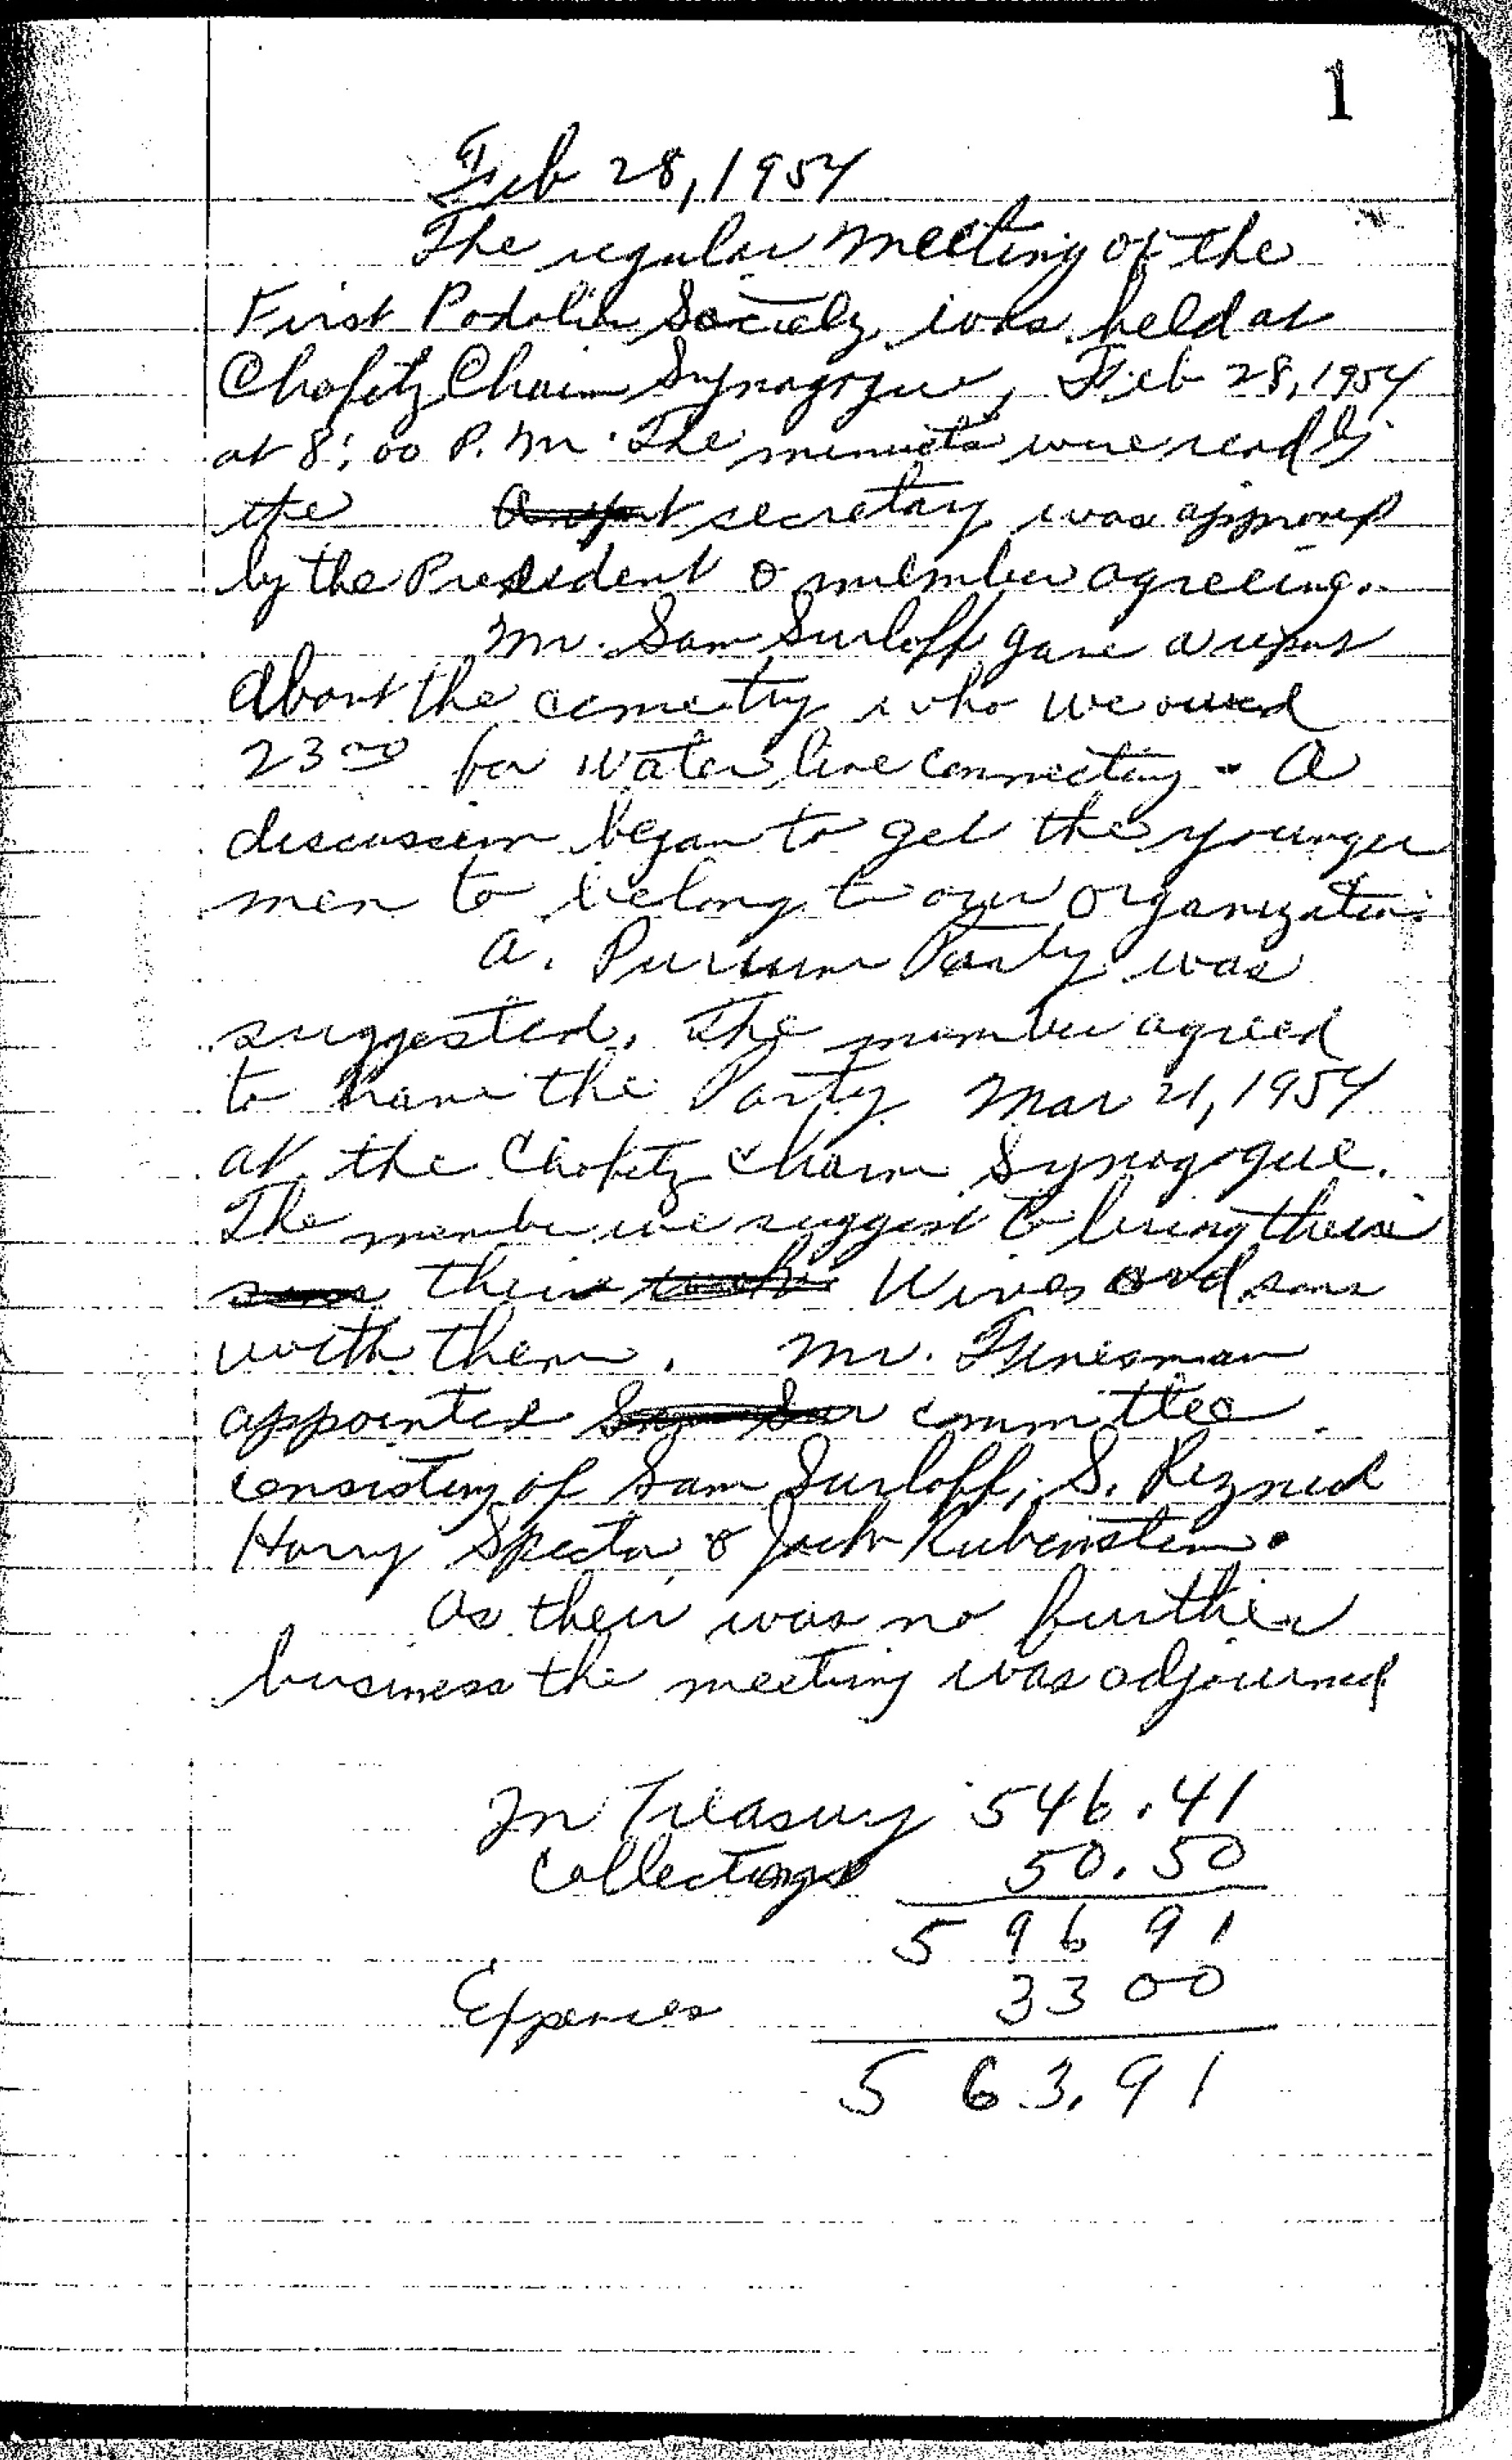 1
Feb 28, 1954
The regular meeting of the
First Podolier Society was held at
Chofetz Chaim Synagogue, Feb 28, 1954
at 8:00 P. M. The minutes were read by
the secretary was approved
by the President & member agreeing.
Mr. Sam Surloff gave a report
about the cemetry who we owed
23 00 for water line connecting. A
discussion began to get the younger
men to belong to our organization.
A. Purium Party was
suggested. The member agreed
to have the Party Mar 21, 1954
at the Chofetz Chaim Synagogue.
The member we suggest to bring their
sons their Wives and sons
with them. Mr.
appointed Sam Sur committee
consisting of Sam Surloff, S. Reznick
Harry Spector & Jack Rubenstein.
As their was no further
business the meeting was adjourned
In Treasury 546.41
Collectings 50.50
5 96 91
Expences 33 00
5 63.91